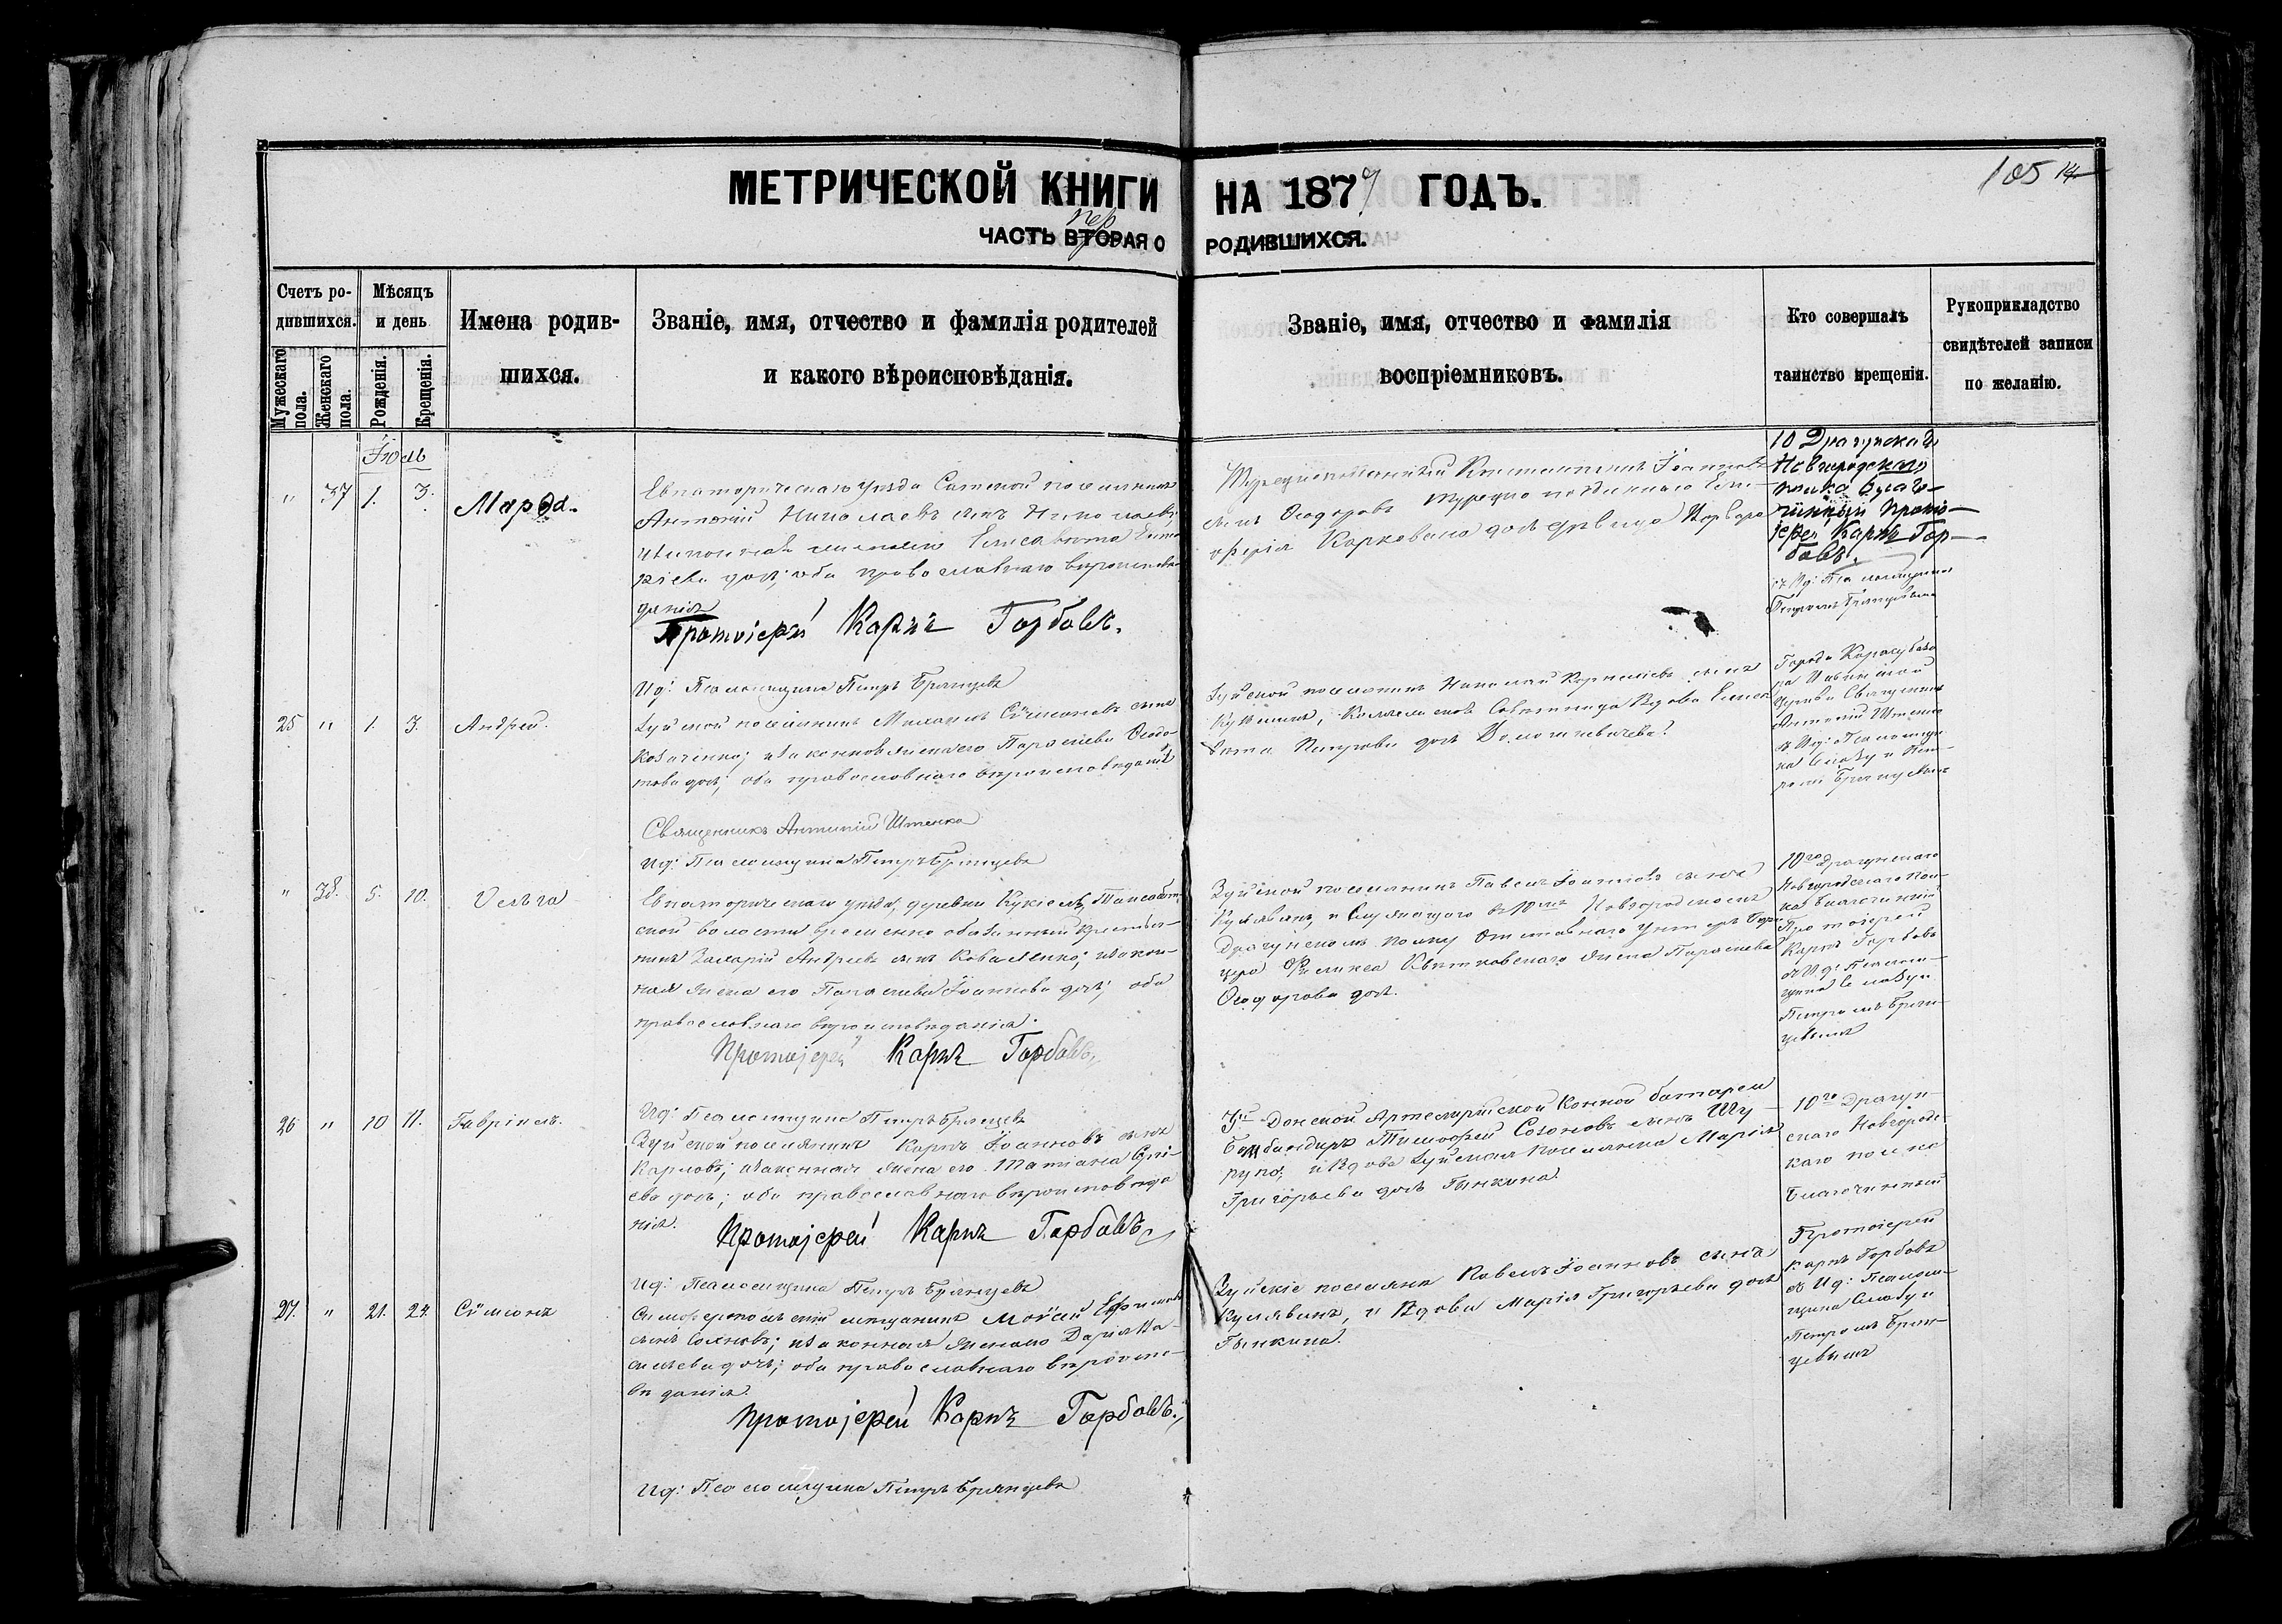 МЕТРИЧЕСКОЙ КНИГИ НА 1879 ГОДЪ.
105 14
пер
ЧАСТЬ ВТОРАЯ О РОДИВШИХСЯ.
Счетъ ро-
дившихся.
Мужескаго пола.
Женскаго пола.
Мѣсяцъ
и день
Рожденія.
Крещенія.
Имена родив-
шихся.
Званіе, имя, отчество и фамилія родителей
и какого вѣроисповѣданія.
Званіе, имя, отчество и фамилія
воспріемниковъ.
Кто совершалъ
таинство крещенія.
Рукоприкладство
свидѣтелей записи
по желанію.
Іюль
" 37 1. 3. Марѳа.
Евпаторическаго уѣзда поселянинъ
Антоній Николаевъ сынъ
жена его Елисавета
дочь; оба православнаго вѣроисповѣ-
данія
Протоіерей Карпъ Горбовъ.
Ид: Псаломщика Петръ Брянцевъ
Константинъ Іоанновъ
сынъ Ѳеодоровъ
дочь девица Варвара
10 Драгунскаго
Новгородскаго
полка Благо-
чинный Прото-
іерей Карпъ Гор-
бовъ.
съ Ид: Псаломщика
Петромъ Брянцевымъ
25 " 1. 3. Андрей.
Зуйской поселянинъ Михаилъ Сѵмеоновъ сынъ
Козаченко; и законная жена его Параскева Ѳеодо-
това дочь; оба православнаго вѣроисповѣданія
Священникъ Антоній Штенко
Ид: Псаломщика Петръ Брянцевъ
Зуйской поселянинъ Николай Корниліевъ сынъ
Вдова Елиса-
вета Петрова дочь
Города Карасубаза-
ра
церкви Священникъ
Антоній Штенко
съ Ид: Псаломщи-
ка Славу и Пет-
ромъ Брянцевымъ
" 38. 5. 10. Ольга
Евпаторическаго уѣзда, деревни
ской волости временно обязанный крестья-
нинъ Захарій Андреевъ сынъ Коваленко; и закон-
ная жена его Параскева Іоаннова дочь; оба
православнаго вѣроисповѣданія.
Протоіерей Карпъ Горбовъ,
Зуйской поселянинъ Павелъ Іоанновъ сынъ
Кулявинъ, и Служащаго въ 10мъ Новгородскомъ
Драгунскомъ полку отставнаго Унтеръ Офи-
цера Феликса жена Параскева
Ѳеодорова дочь.
10го Драгунскаго
Новгородскаго Пол-
ка Благочинный
Протоіерей
Карпъ Горбовъ
съ Ид: Псалом-
щика Славу и
Петромъ Брян-
цевымъ
26 " 10 11. Гавріилъ.
Ид: Псаломщика Петръ Брянцевъ
Зуйской поселянинъ Карпъ Іоанновъ сынъ
Карповъ; и законная жена его Татіана
ева дочь; оба православнаго вѣроисповѣда
нія.
Протоіерей Карпъ Горбовъ
Донской Артилерійской Конной батареи
Бомбандиръ Тимофей Созоновъ сынъ Шу-
рупо; и Вдова Зуйская поселянка Марія
Григорьева дочь Гынкина.
10го Драгун-
скаго Новгородс-
каго полка
Благочинный
Протоіерей
Карпъ Горбовъ
съ Ид: Псалом-
щика Славу и
Петромъ Брян-
цевымъ
27. " 21. 24. Сѵмеонъ
Ид: Псаломщика Петръ Брянцевъ
Симферопольскій мещанинъ Моѵсей Ефимовъ
сынъ; и законная жена его Дарія Ва-
сильева дочь; оба православнаго вѣроиспо-
вѣданія.
Протоіерей Карпъ Горбовъ.
Ид: Псаломщика Петръ Брянцевъ
Зуйскіе поселяне Павелъ Іоанновъ сынъ
Кулявинъ, и Вдова Марія Григорьева дочь
Гынкина.